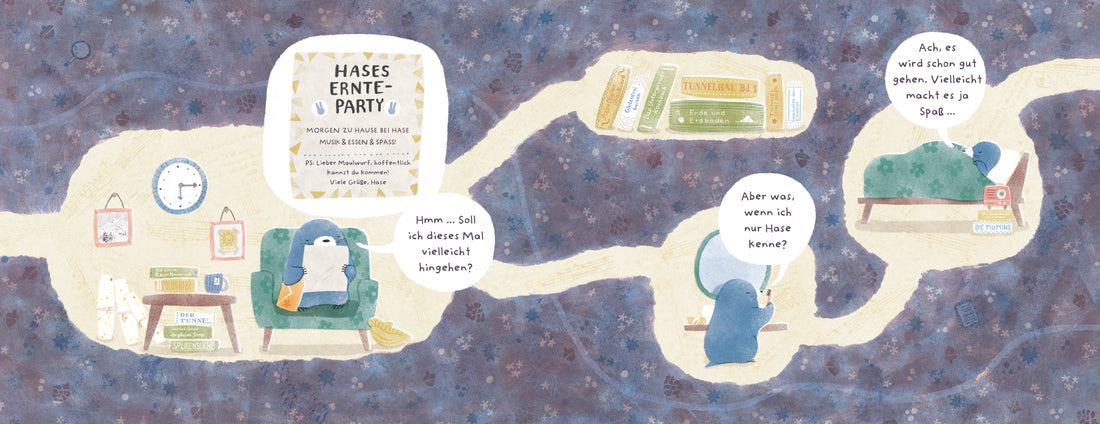 HASES
ERNTE-
PARTY
MORGEN ZU HAUSE BEI HASE
MUSIK & ESSEN & SPASS!
PS: Lieber Maulwurf, hoffentlich
kannst du kommen!
Viele Grüße, Hase
Hmm ... Soll
ich dieses Mal
vielleicht
hingehen?
DER
TUNNEL
SPURENSUCHE
TUNNELBAU Bd 1
Erde und
Erdboden
Aber was,
wenn ich
nur Hase
kenne?
Ach, es
wird schon gut
gehen. Vielleicht
macht es ja
Spaß ...
DIE MUMINS